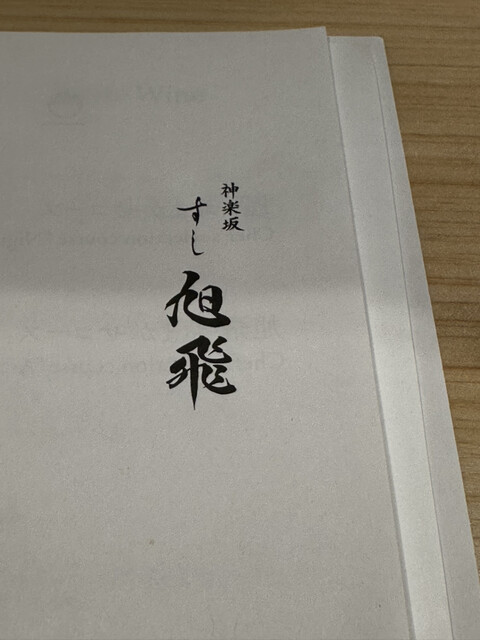 神楽坂
すし
旭飛
Wine